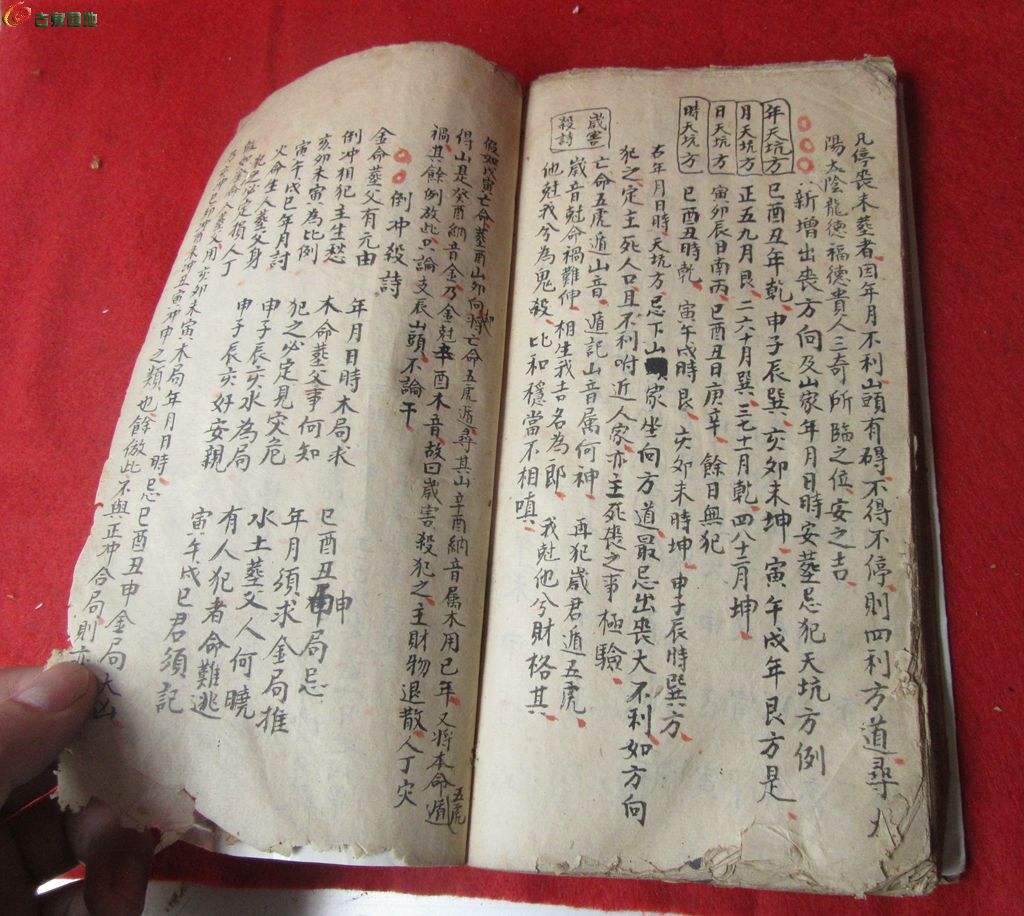 古泉园地
凡停喪未葬者因年月不利山頭有碍不得不停則四利方道尋太
陽太陰龍德福德貴人三奇所臨之位安之吉
新增出喪方向及山家年月日時安葬忌犯天坑方例
年天坑方 巳酉丑年乾 申子辰巽 亥卯未坤 寅午戌年艮方是
月天坑方 正五九月艮 二六十月巽 三七十一月乾 四八十二月坤
日天坑方 寅卯辰日南丙 巳酉丑日庚辛 餘日無犯
時天坑方 巳酉丑時乾 寅午戌時艮 亥卯未時坤 申子辰時巽方
右年月日時天坑方忌下山家坐向方道最忌出喪大不利如方向
犯之定主死人口且不利附近人家亦主死喪之事極驗
歲害殺詩
亡命五虎遁山音 遁記山音屬何神 再犯歲君遁五虎
歲音尅命禍難伸 相生我吉名為郎 我尅他兮財格其
他尅我兮為鬼殺 比和穩當不相嗔
假如戊寅亡命葬酉山卯向將亡命五虎遁尋其山辛酉納音屬木用巳年又將本命五虎遁
得山是癸酉納音金乃金尅辛酉木音故曰歲害殺犯之主財物退散人丁灾
禍其餘例放此只論支辰山頭不論干
倒冲殺詩
金命葬父有元由 年月日時木局求 巳酉丑申局忌
倒冲相犯主生愁 木命葬父事何知 年月須求金局推
亥卯未寅為比例 犯之必定見灾危 水土葬父人何曉
寅午戌巳年月討 申子辰亥水為局 有人犯者命難逃
火命生人葬父身 申子辰亥好安親 寅午戌巳君須記
犯巳必定損人丁
假如金命人葬父用亥卯未寅木局年月日時忌巳酉丑申金局大凶
冲丑寅冲申之類也餘倣此不與正冲合局則亦